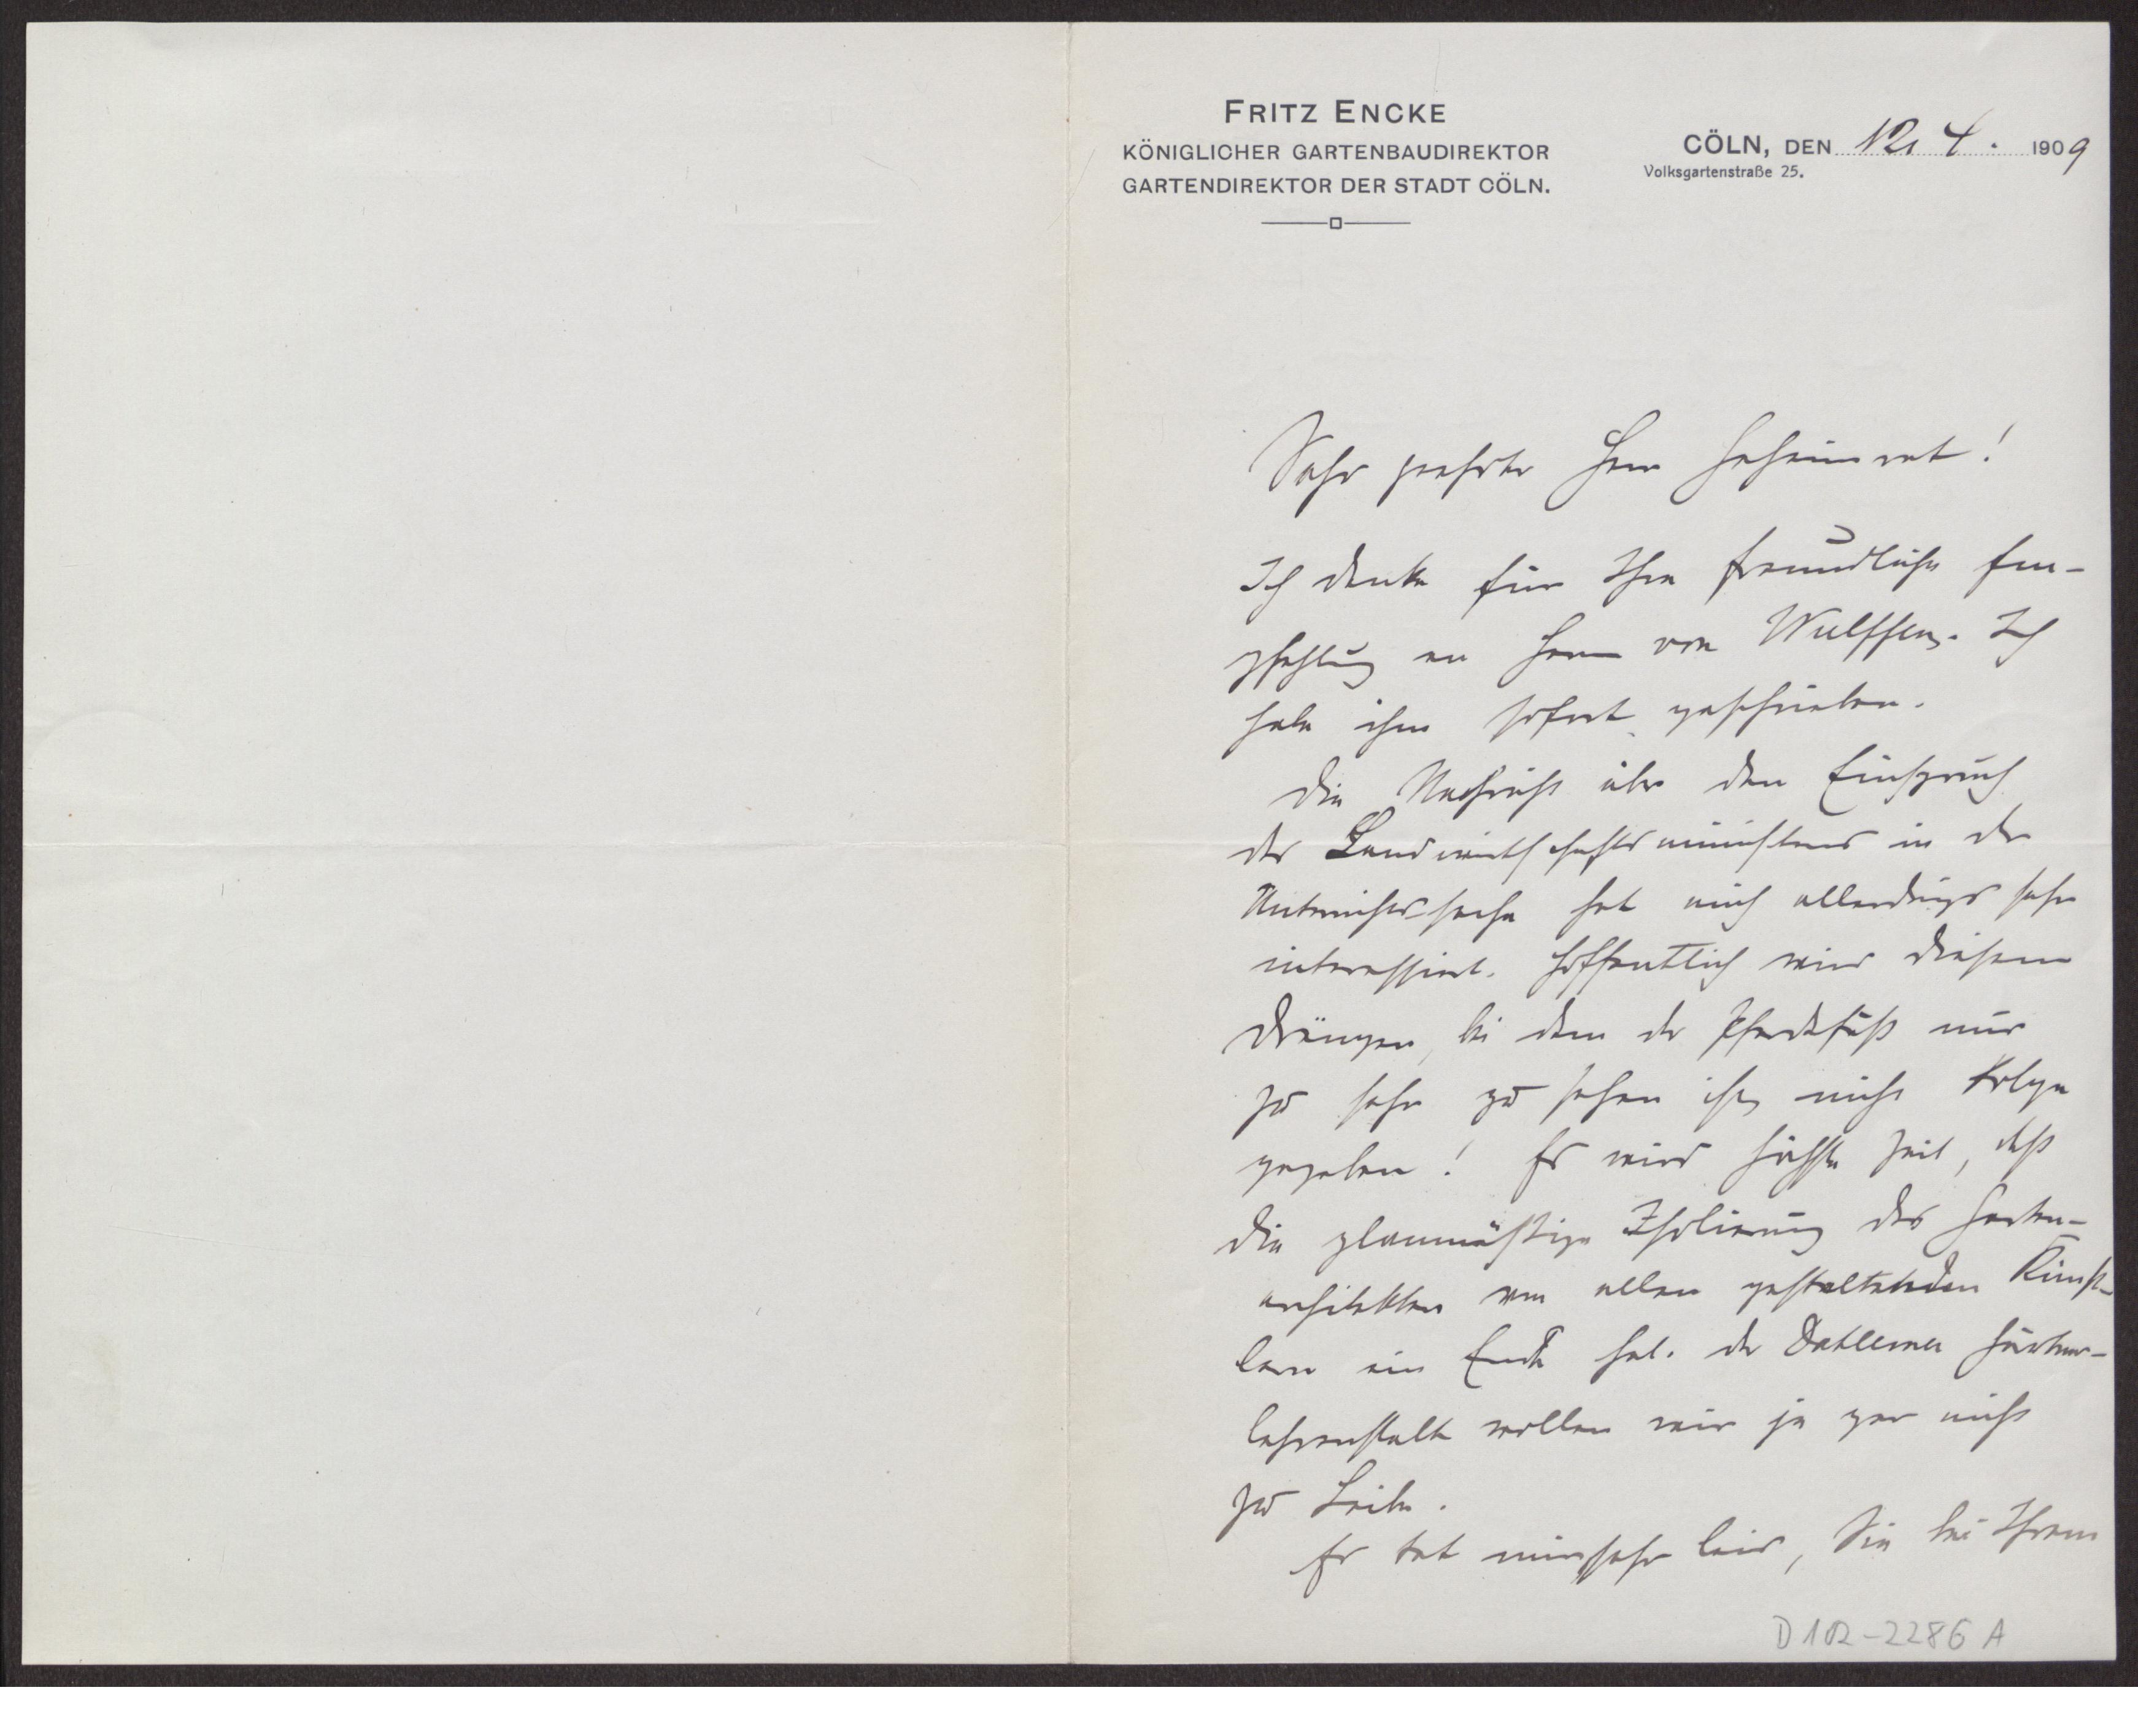 FRITZ ENCKE
KÖNIGLICHER GARTENBAUDIREKTOR
GARTENDIREKTOR DER STADT CÖLN.
CÖLN, DEN 12. 4. 1909
Volksgartenstraße 25.
Sehr geehrter Herr Geheimrat!
Ich danke für Ihre freundliche Em-
pfehlung an Herrn von Wulffen. Ich
habe ihm sofort geschrieben.
Die Nachricht über den Einspruch
des Landwirtschaftsministers in der
Unterrichtssache hat mich allerdings sehr
interessiert. Hoffentlich wird diesem
Drängen, bei dem der Pferdefuß nur
zu sehr zu sehen ist, nicht Folge
gegeben! Es wird höchste Zeit, daß
die planmäßige Isolierung des Garten-
architekten von allen gestaltenden Künst-
lern ein Ende hat. Der Dahlemer Gärtner-
lehranstalt wollen wir ja gar nicht
zu Leibe.
Es tat mir sehr leid, Sie bei Ihrem
D 102-2286 A